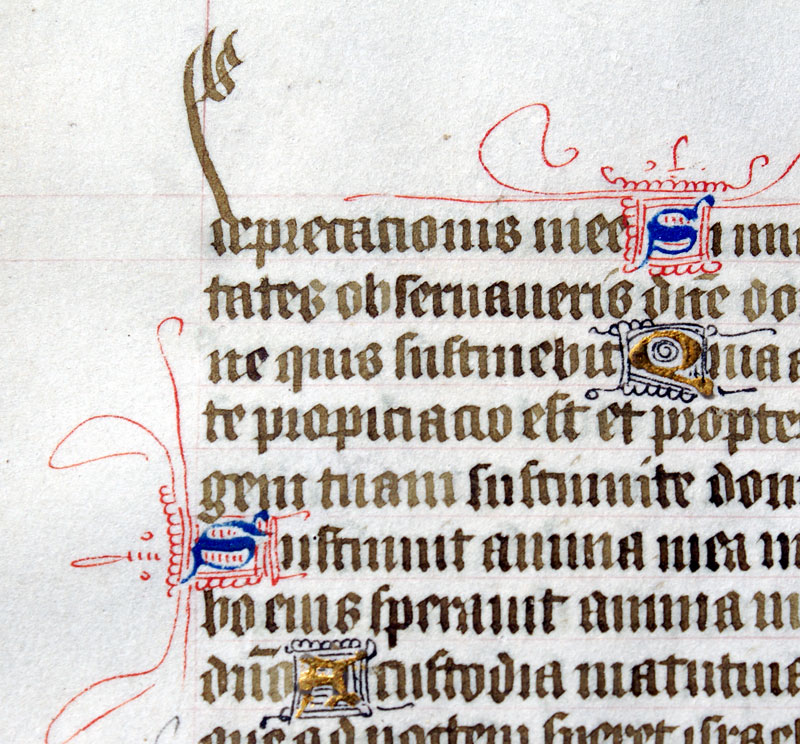 deprecationis mee Si ini
tates obseruaueris dñe do
ne quis sustinebit Quia a
te propiciacio est et propte
gem tuam sustinui te dom
Sustinuit anima mea in
bo eius sperauit anima m
dño A custodia matutina
que ad noctem speret israel